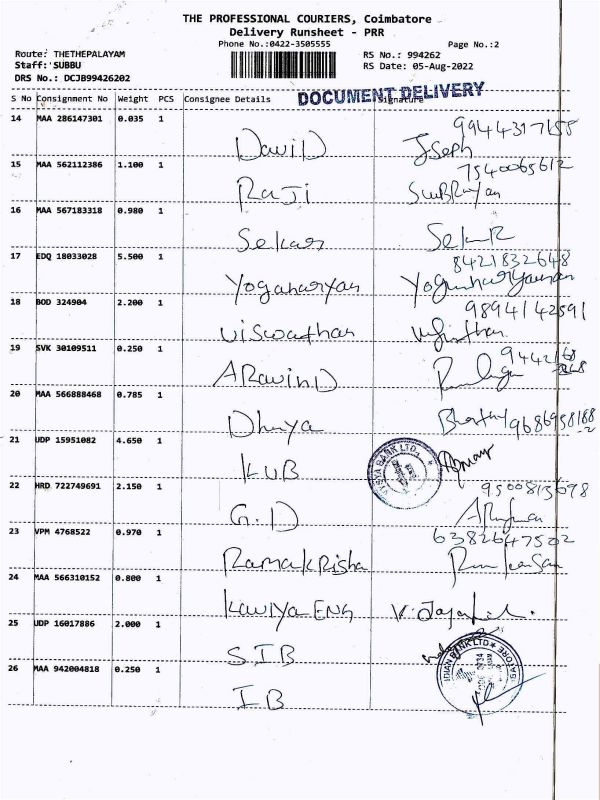 THE PROFESSIONAL COURIERS, Coimbatore
Delivery Runsheet - PRR
Phone No.:0422-3505555 Page No.:2
Route: THETHEPALAYAM RS No.: 994262
Staff: SUBBU RS Date: 05-Aug-2022
DRS No.: DCJB99426202
DOCUMENT DELIVERY
S No Consignment No Weight PCS Consignee Details Signature
14 MAA 286147301 0.035 1 DaviD Joseph
15 MAA 562112386 1.100 1 RaJi 7540065612
16 MAA 567183318 0.980 1 Sekar Sekar
17 EDQ 18033028 5.500 1 Yogaharyan 8421832648
18 BOD 324904 2.200 1 Viswathan 9894142591
19 SVK 30109511 0.250 1 ARavinD
20 MAA 566888468 0.785 1 Dhivya
21 UDP 15951082 4.650 1 KVB
22 HRD 722749691 2.150 1 G.D 9500813698
23 VPM 4768522 0.970 1 RamakRisha 6382647502
24 MAA 566310152 0.800 1 KaviyaENG
25 UDP 16017886 2.000 1 S.I.B
26 MAA 942004818 0.250 1 IB